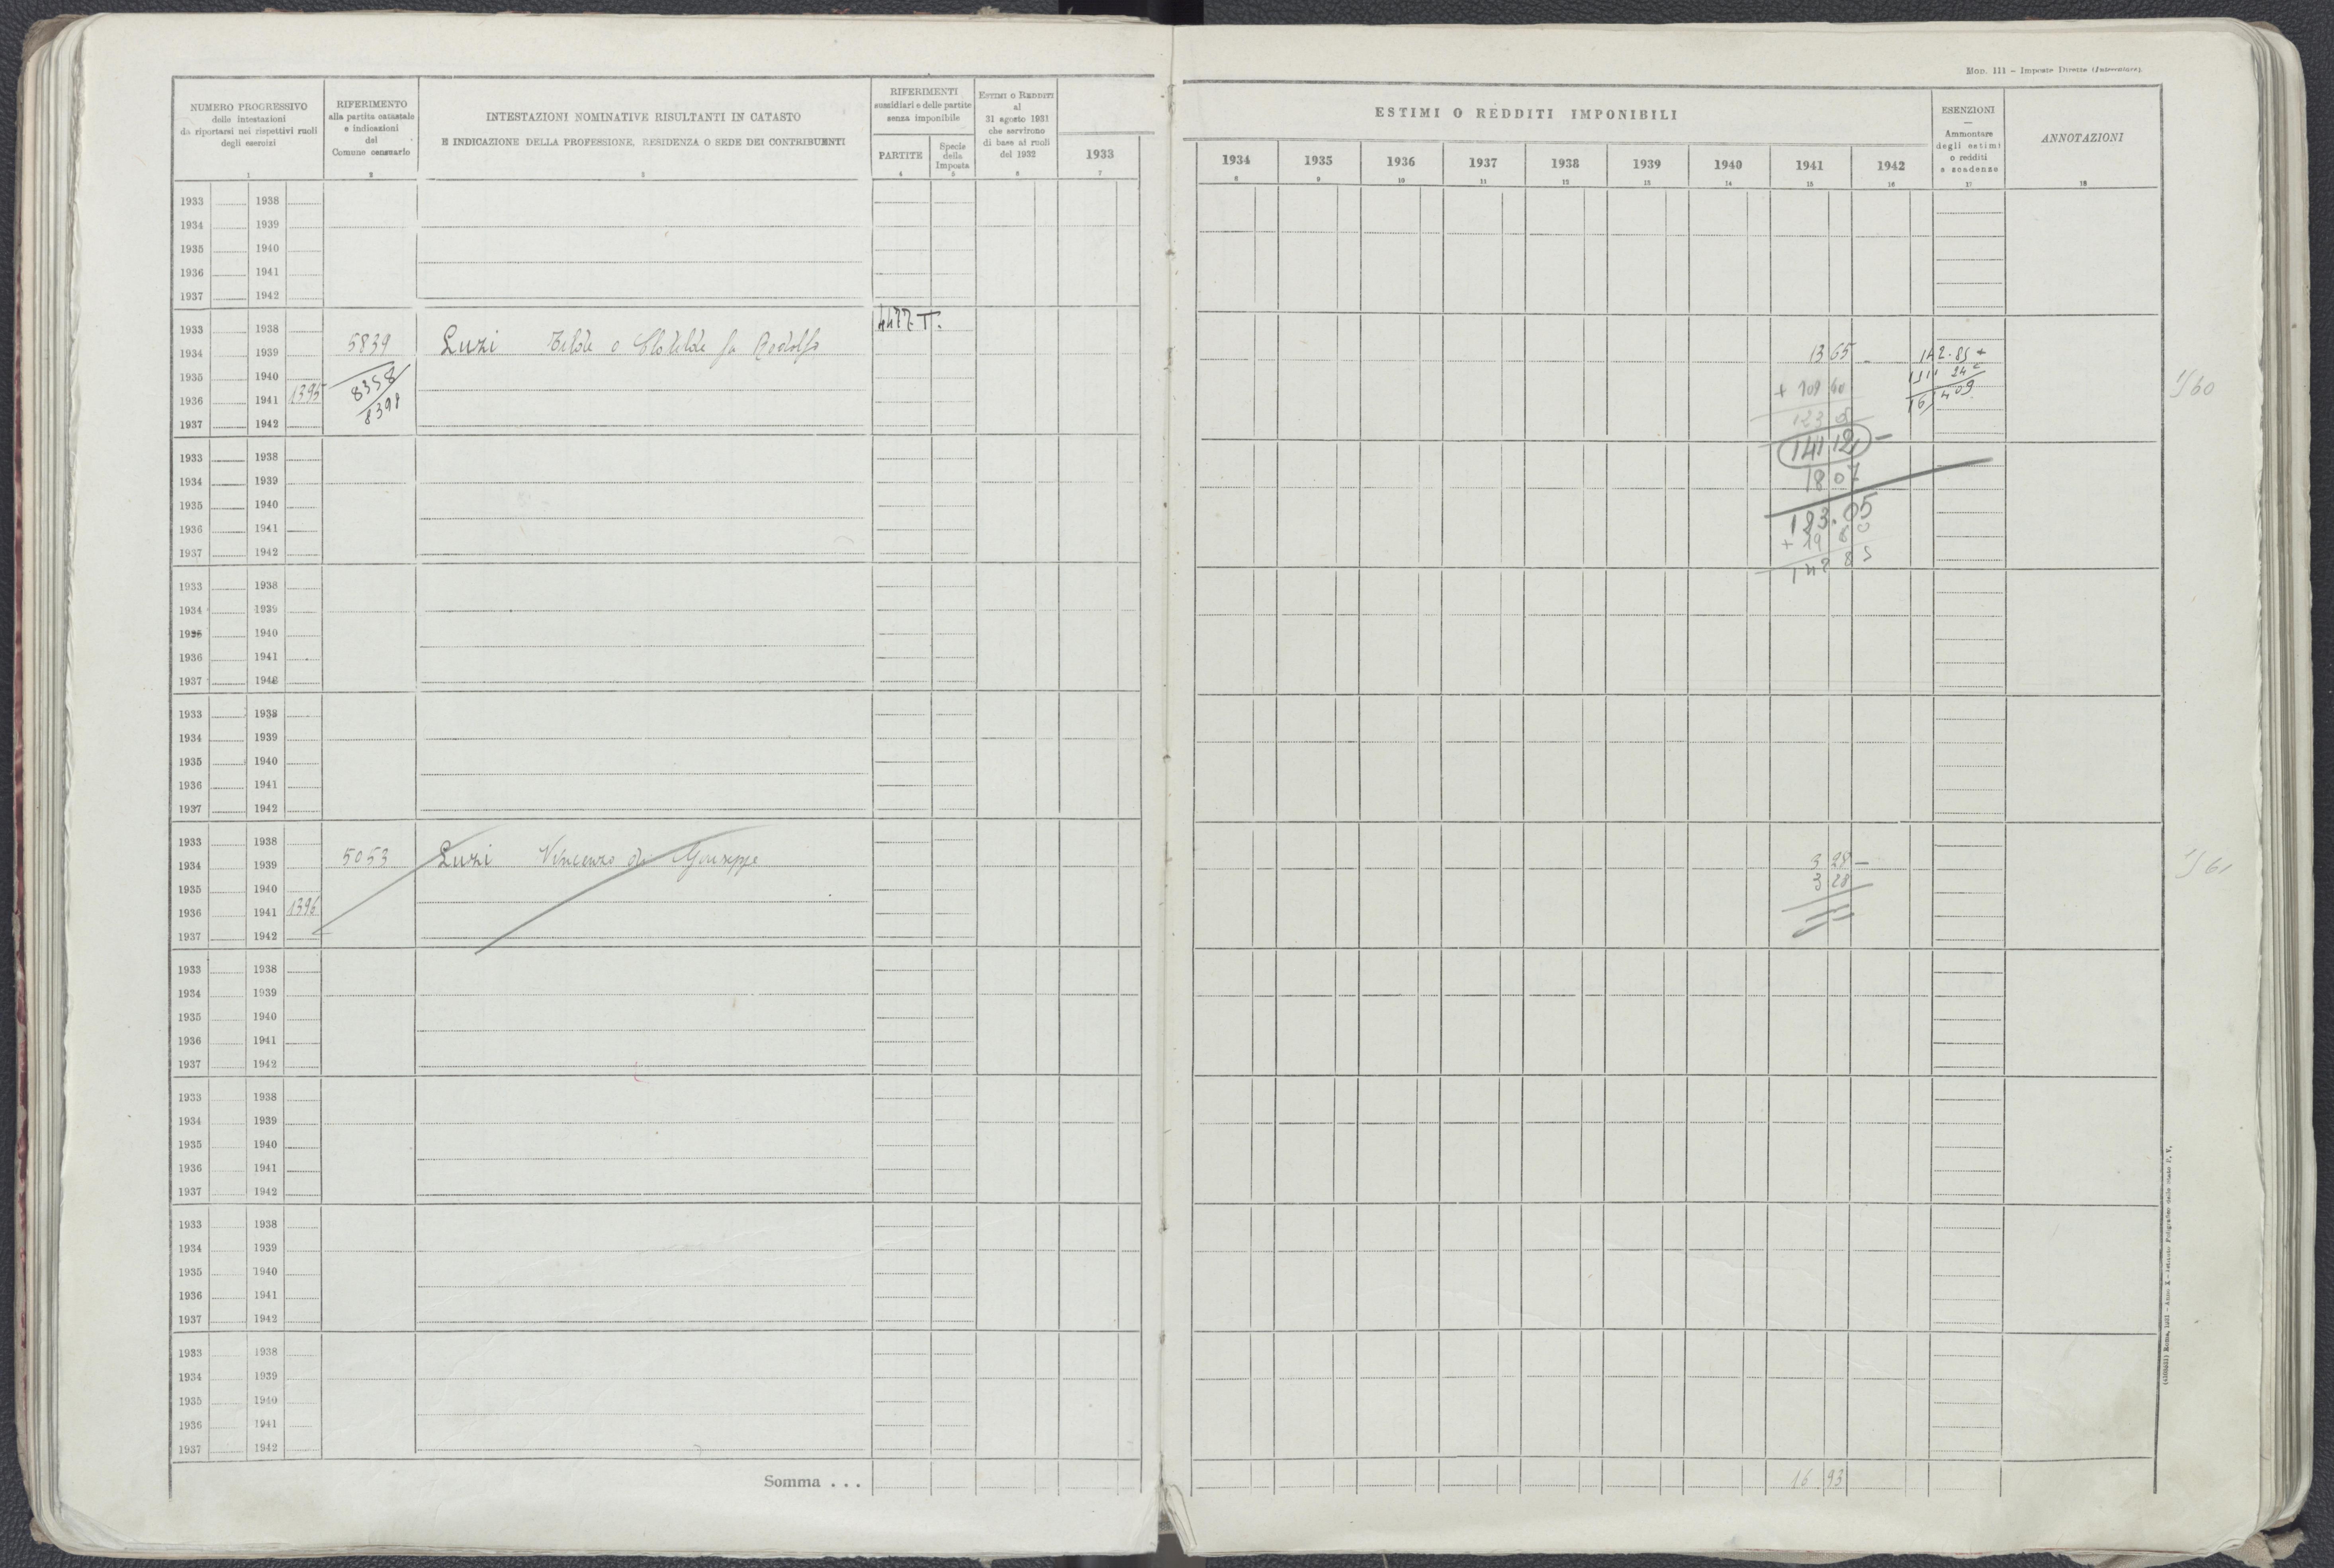 Mod. 111 – Imposte Dirette (Intercalare).
NUMERO PROGRESSIVO
delle intestazioni
da riportarsi nei rispettivi ruoli
degli esercizi
1
RIFERIMENTO
alla partita catastale
e indicazioni
del
Comune censuario
2
INTESTAZIONI NOMINATIVE RISULTANTI IN CATASTO
E INDICAZIONE DELLA PROFESSIONE, RESIDENZA O SEDE DEI CONTRIBUENTI
3
RIFERIMENTI
sussidiari e delle partite
senza imponibile
PARTITE
4
Specie
della
Imposta
5
Estimi o Redditi
al
31 agosto 1931
che servirono
di base ai ruoli
del 1932
6
1933
7
ESTIMI O REDDITI IMPONIBILI
1934 1935 1936 1937 1938 1939 1940 1941 1942
8 9 10 11 12 13 14 15 16
ESENZIONI
—
Ammontare
degli estimi
o redditi
a scadenze
17
ANNOTAZIONI
18
1933 1938
1934 1939
1935 1940
1936 1941
1937 1942
4477 T.
1933 1938
1934 1939 5839 Luzi Tilde o Clotilde fu Rodolfo 13 65 142.85 +
1935 1940 8358
1936 1941 1395 8398 + 109 40 1/60
1937 1942
141 12
1933 1938
1934 1939 18 07
1935 1940
1936 1941 123.05
1937 1942 + 19 80
142 85
1933 1938
1934 1939
1935 1940
1936 1941
1937 1942
1933 1938
1934 1939
1935 1940
1936 1941
1937 1942
1933 1938
1934 1939 5053 Luzi Vincenzo di Giuseppe 3 28 — 1/61
1935 1940 3 28
1936 1941 1396
1937 1942
1933 1938
1934 1939
1935 1940
1936 1941
1937 1942
1933 1938
1934 1939
1935 1940
1936 1941
1937 1942
1933 1938
1934 1939
1935 1940
1936 1941
1937 1942
1933 1938
1934 1939
1935 1940
1936 1941
1937 1942
Somma . . . 16 93